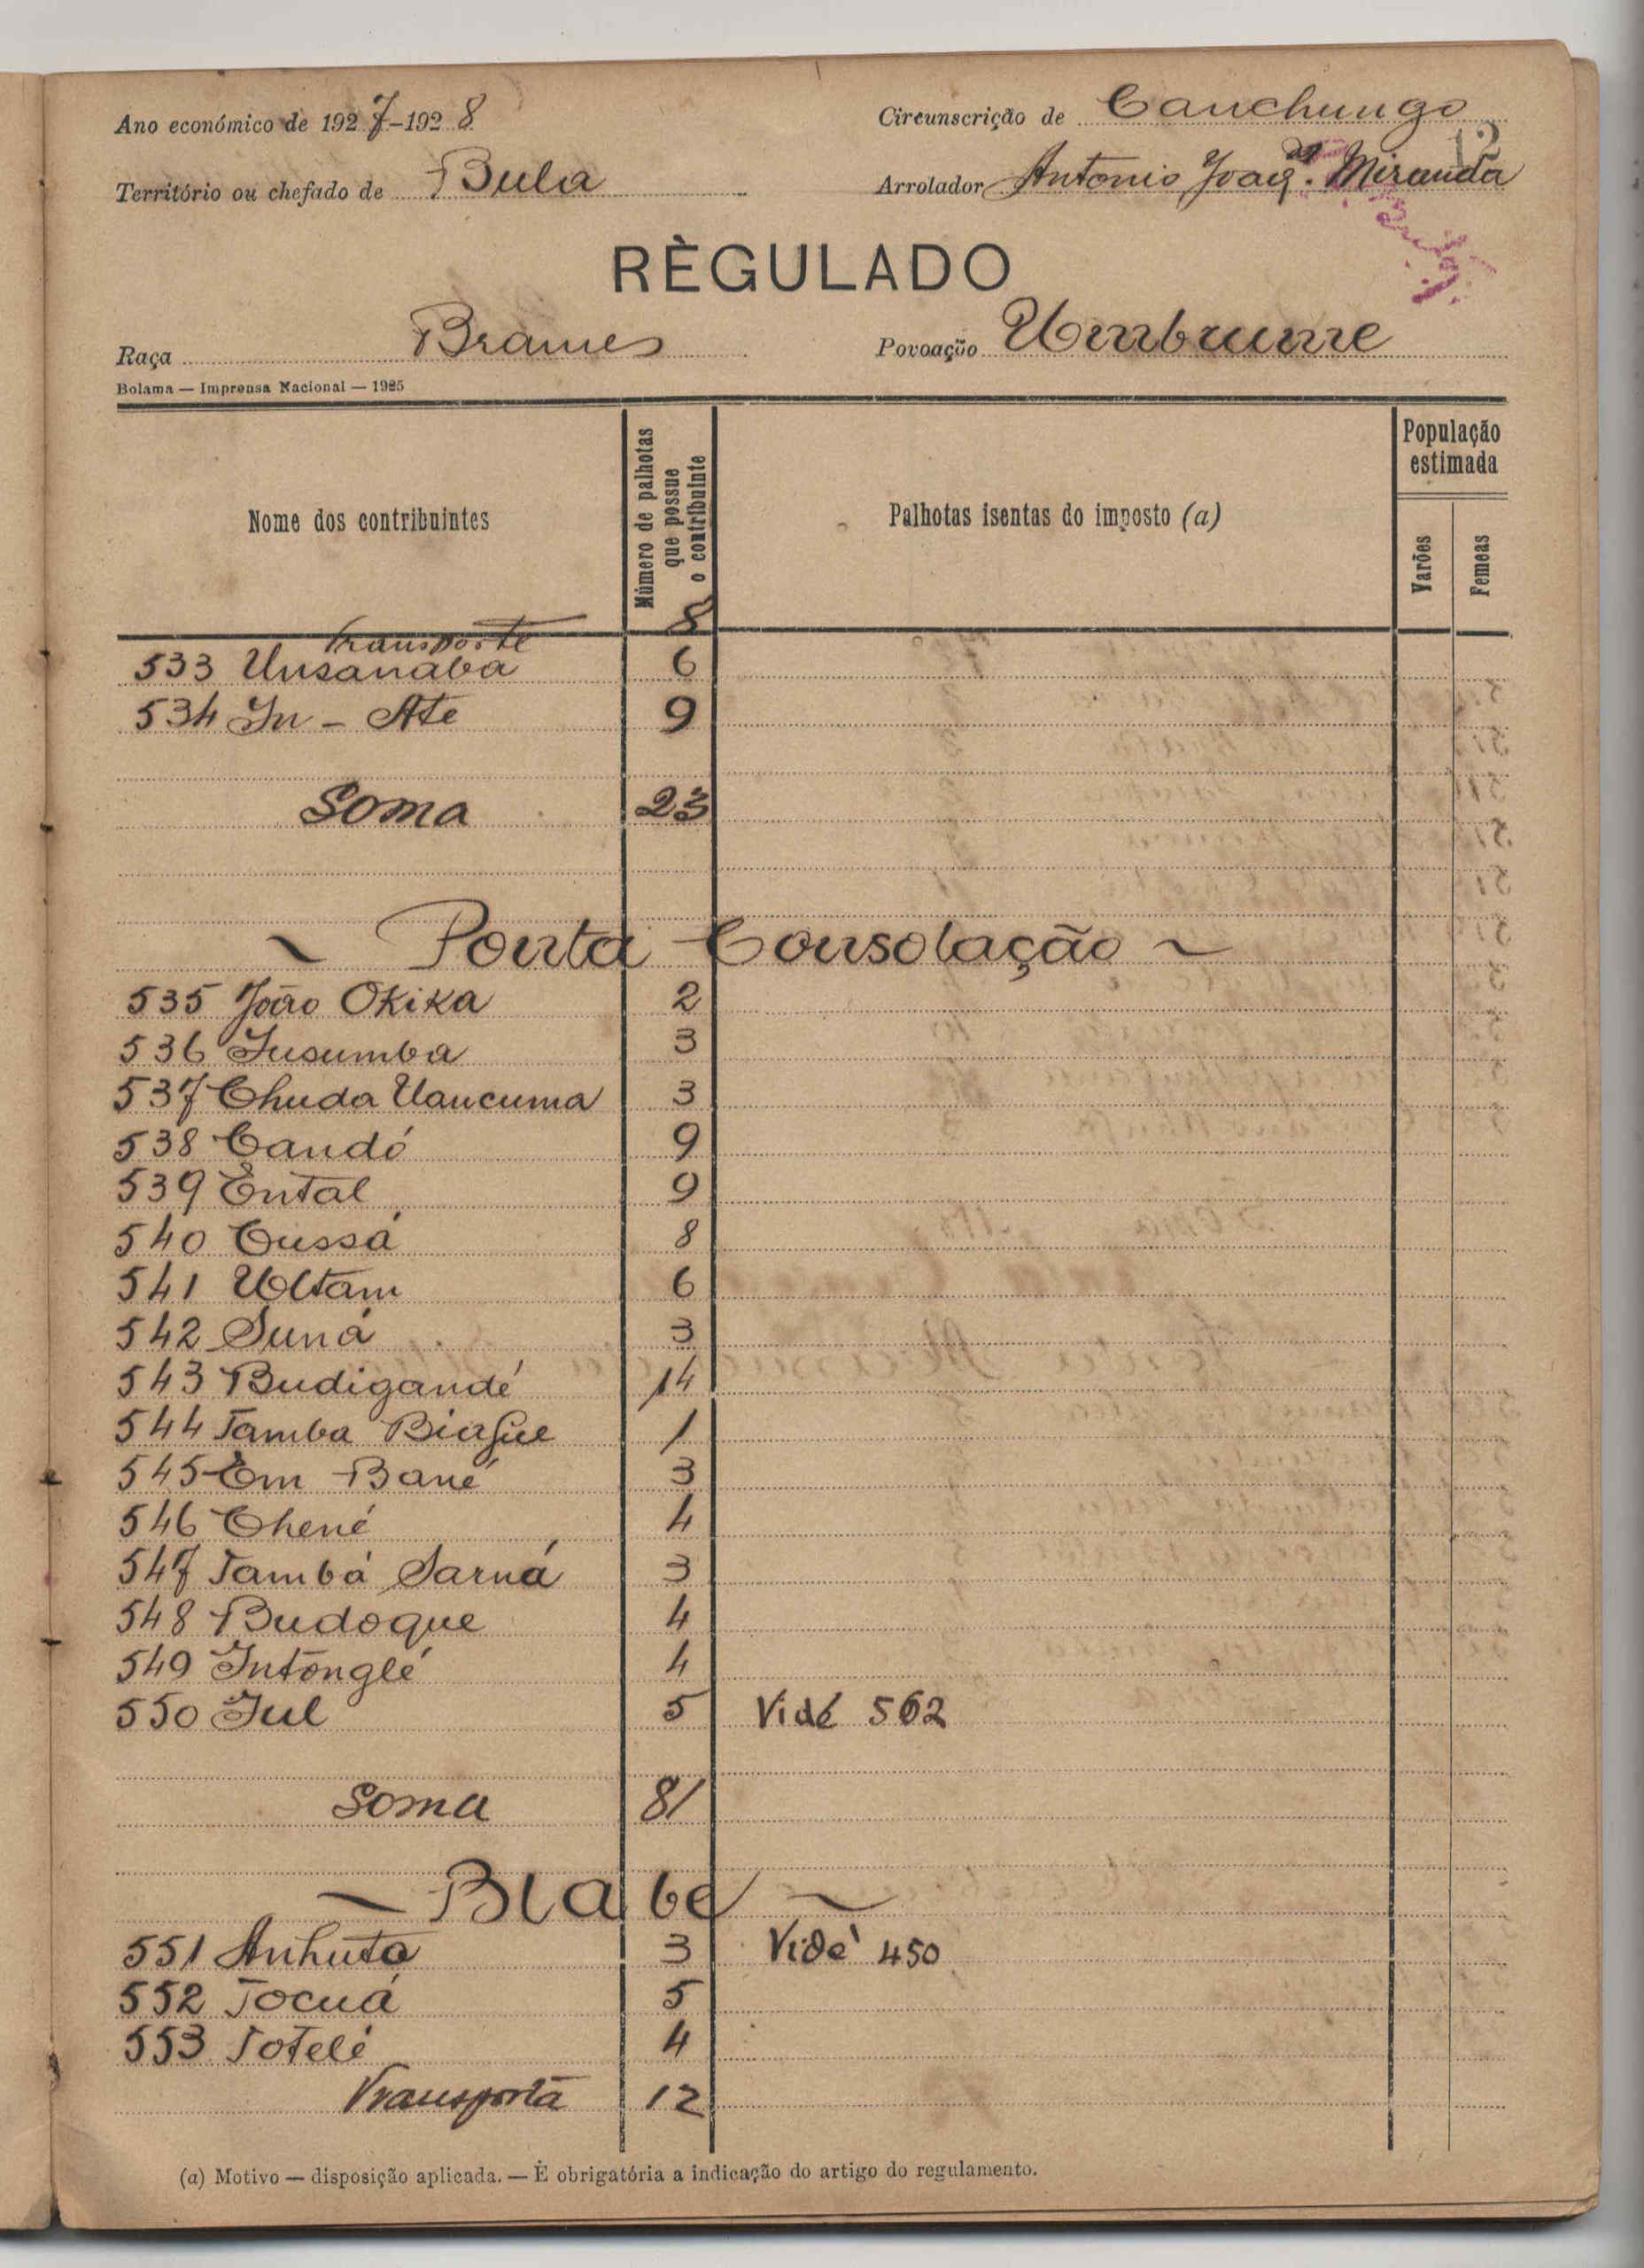 Ano económico de 1927-1928
Circunscrição de Canchungo
12
Território ou chefado de Bula
Arrolador Antonio Joaqm. Miranda
RÈGULADO
Raça Brames
Povoação Umbrume
Bolama — Imprensa Nacional — 1925
Nome dos contribuintes
Número de palhotas que possue o contribuinte
Palhotas isentas do imposto (a)
População estimada
Varões
Femeas
Transporte 8
533 Unsanaba 6
534 In - Ate 9
Soma 23
~ Ponta Consolação ~
535 João Okika 2
536 Insumba 3
537 Chuda Uancuma 3
538 Candó 9
539 Ental 9
540 Cussá 8
541 Ultam 6
542 Suná 3
543 Budigandé 14
544 Tamba Biague 1
545 Em Bané 3
546 Chené 4
547 Tambá Sarná 3
548 Budoque 4
549 Intonglé 4
550 Jul 5 Vidé 562
Soma 81
~ Blabe ~
551 Anhuta 3 Vidé 450
552 Tocuá 5
553 Totelé 4
Transporta 12
(a) Motivo — disposição aplicada. — É obrigatória a indicação do artigo do regulamento.